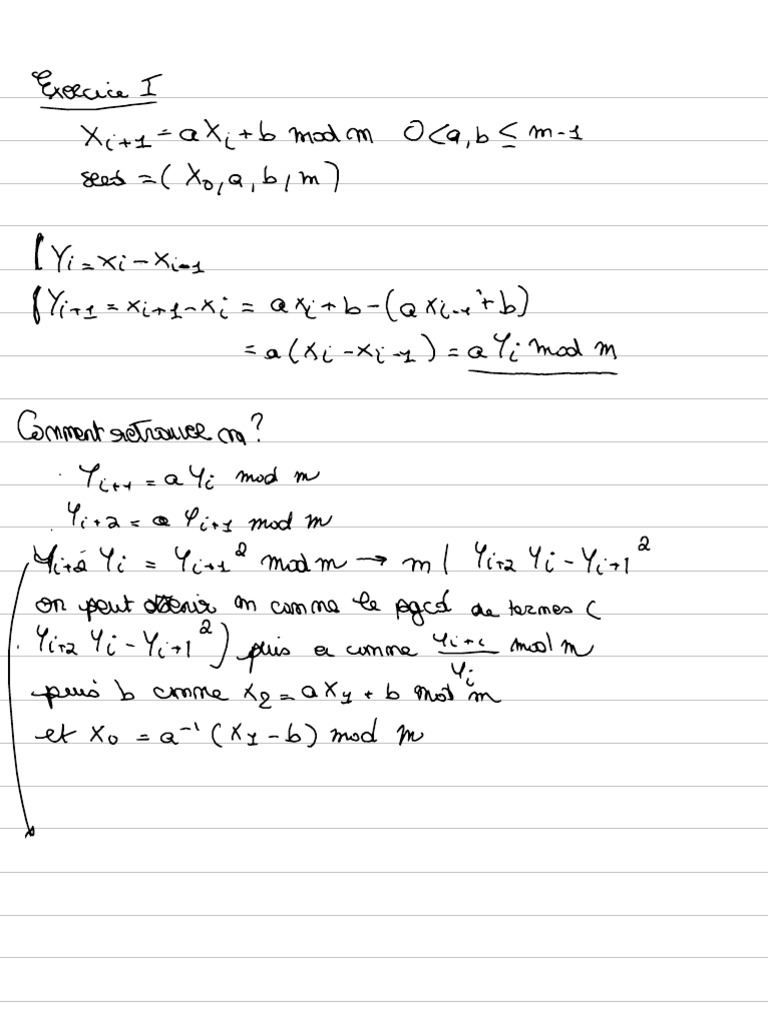 Exercice I
X_{i+1} = a X_i + b mod m   0 < a, b ≤ m-1
seed = ( X_0, a, b, m )
{ Y_i = x_i - x_{i-1}
{ Y_{i+1} = x_{i+1} - x_i = a x_i + b - ( a x_{i-1} + b )
= a ( x_i - x_{i-1} ) = a Y_i mod m
Comment retrouver m ?
. Y_{i+1} = a Y_i mod m
Y_{i+2} = a Y_{i+1} mod m
Y_{i+2} Y_i = Y_{i+1}^2 mod m → m | Y_{i+2} Y_i - Y_{i+1}^2
on peut obtenir m comme le pgcd de termes (
. Y_{i+2} Y_i - Y_{i+1}^2 ) puis a comme Y_{i+1} / Y_i mod m
puis b comme x_2 = a x_1 + b mod m
et x_0 = a^{-1} ( x_1 - b ) mod m